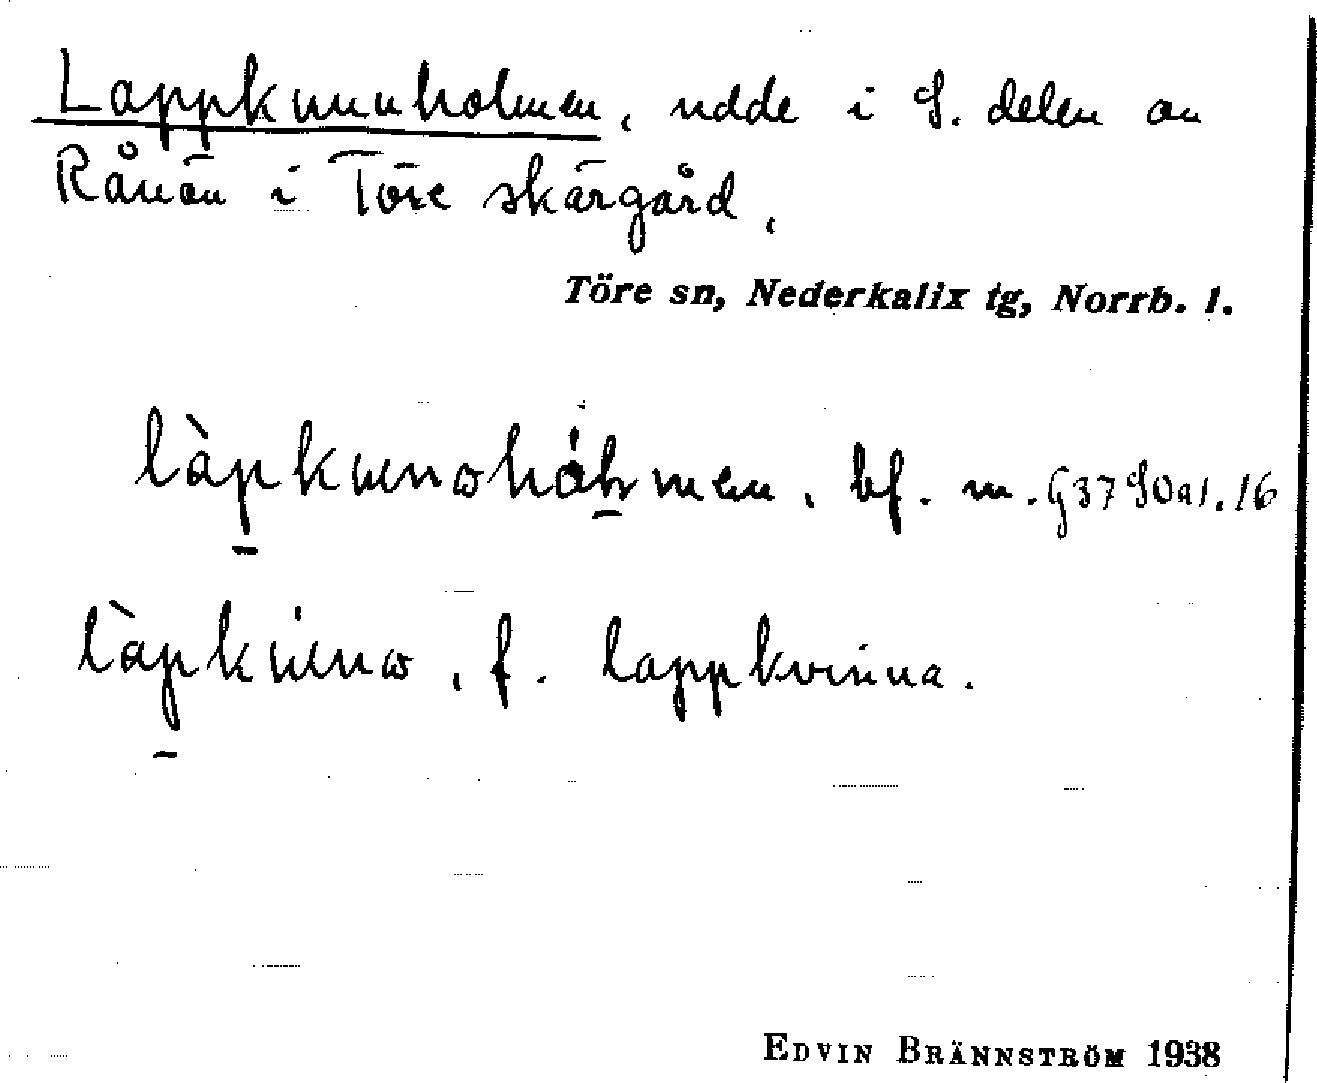 Lappkunnholmen, udde i S. delen av
Rånön i Töre skärgård.
Töre sn, Nederkalix tg, Norrb. l.
bf. m. G37 SOa1.16
f. lappkvinna.
EDVIN BRÄNNSTRÖM 1938